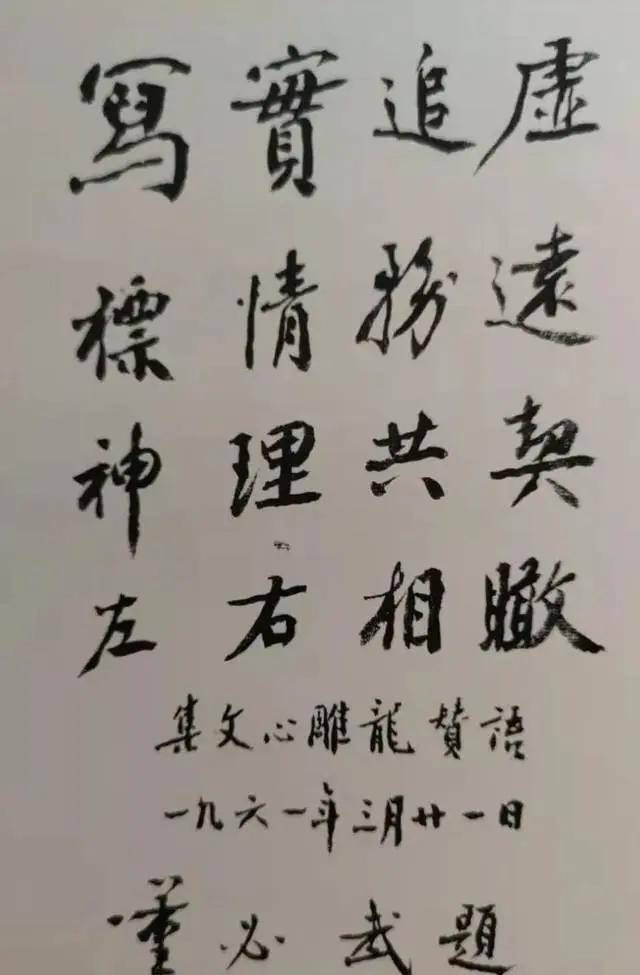 寫實追虛
標情務遠
神理共契
左右相瞰
集文心雕龍贊語
一九六一年三月廿一日
董必武題